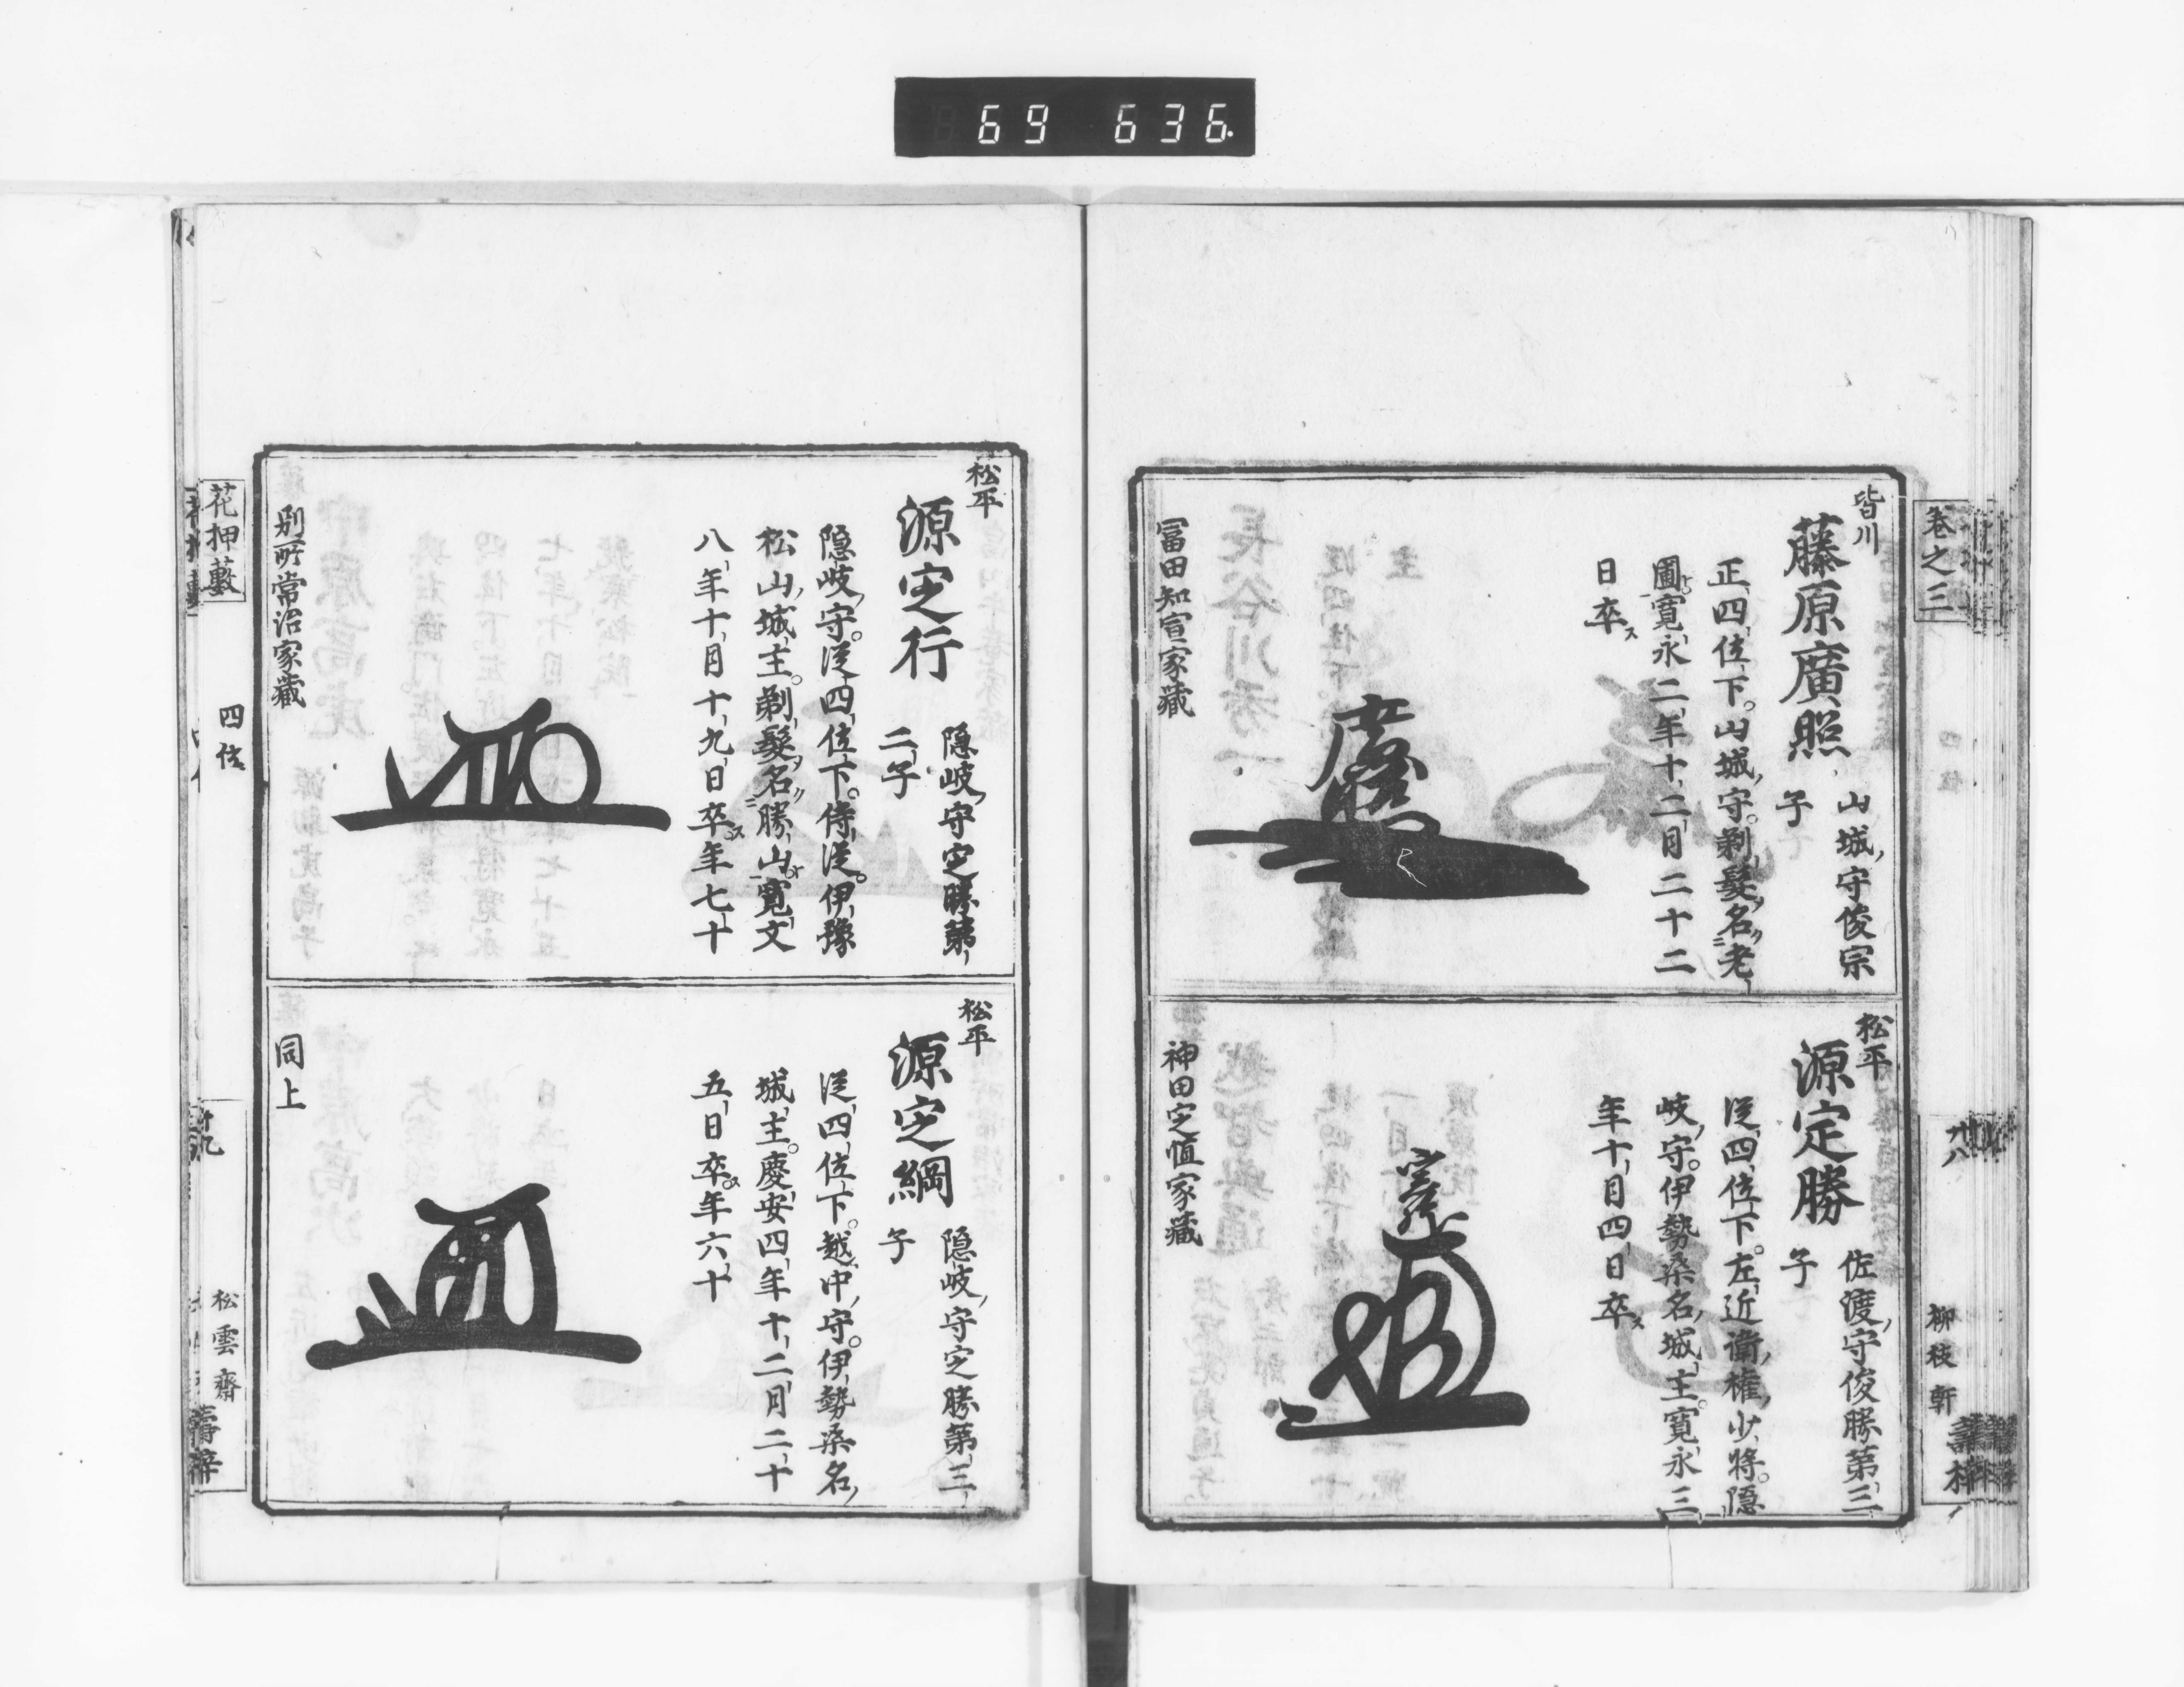 69 636.
巻之三
卅八
柳枝軒
皆川
藤原廣照
山城守俊宗
子
正四位下。山城守。剃髮名老
圃。寛永二年十二月二十二
日卒ス
冨田知宣家藏
松平
源定勝
佐渡守俊勝第三
子
從四位下。左近衛權少將。隠
岐守。伊勢桑名城主。寛永三
年十月四日卒ス
神田定恒家藏
松平
源定行
隠岐守定勝第
二子
隠岐守。從四位下。侍從。伊豫
松山城主。剃髮名勝山。寛文
八年十月十九日卒ス。年七十
別所常治家藏
松平
源定綱
隠岐守定勝第三
子
從四位下。越中守。伊勢桑名
城主。慶安四年十二月二十
五日卒ス。年六十
同上
花押藪
四位
松雲齋